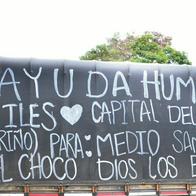 AYUDA HUM
ILES ♥ CAPITAL DEL
RIÑO) PARA: MEDIO SAN
L CHOCO DIOS LOS